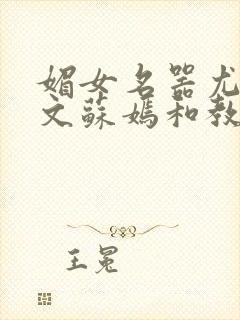 媚女名器尤
文蘇媽和教
王冕